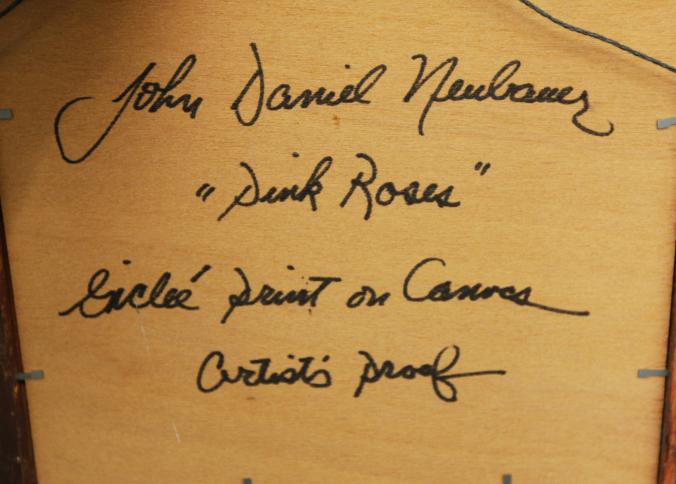 John Daniel Neubauer
"Pink Roses"
Giclee' print on Canvas
Artist's proof